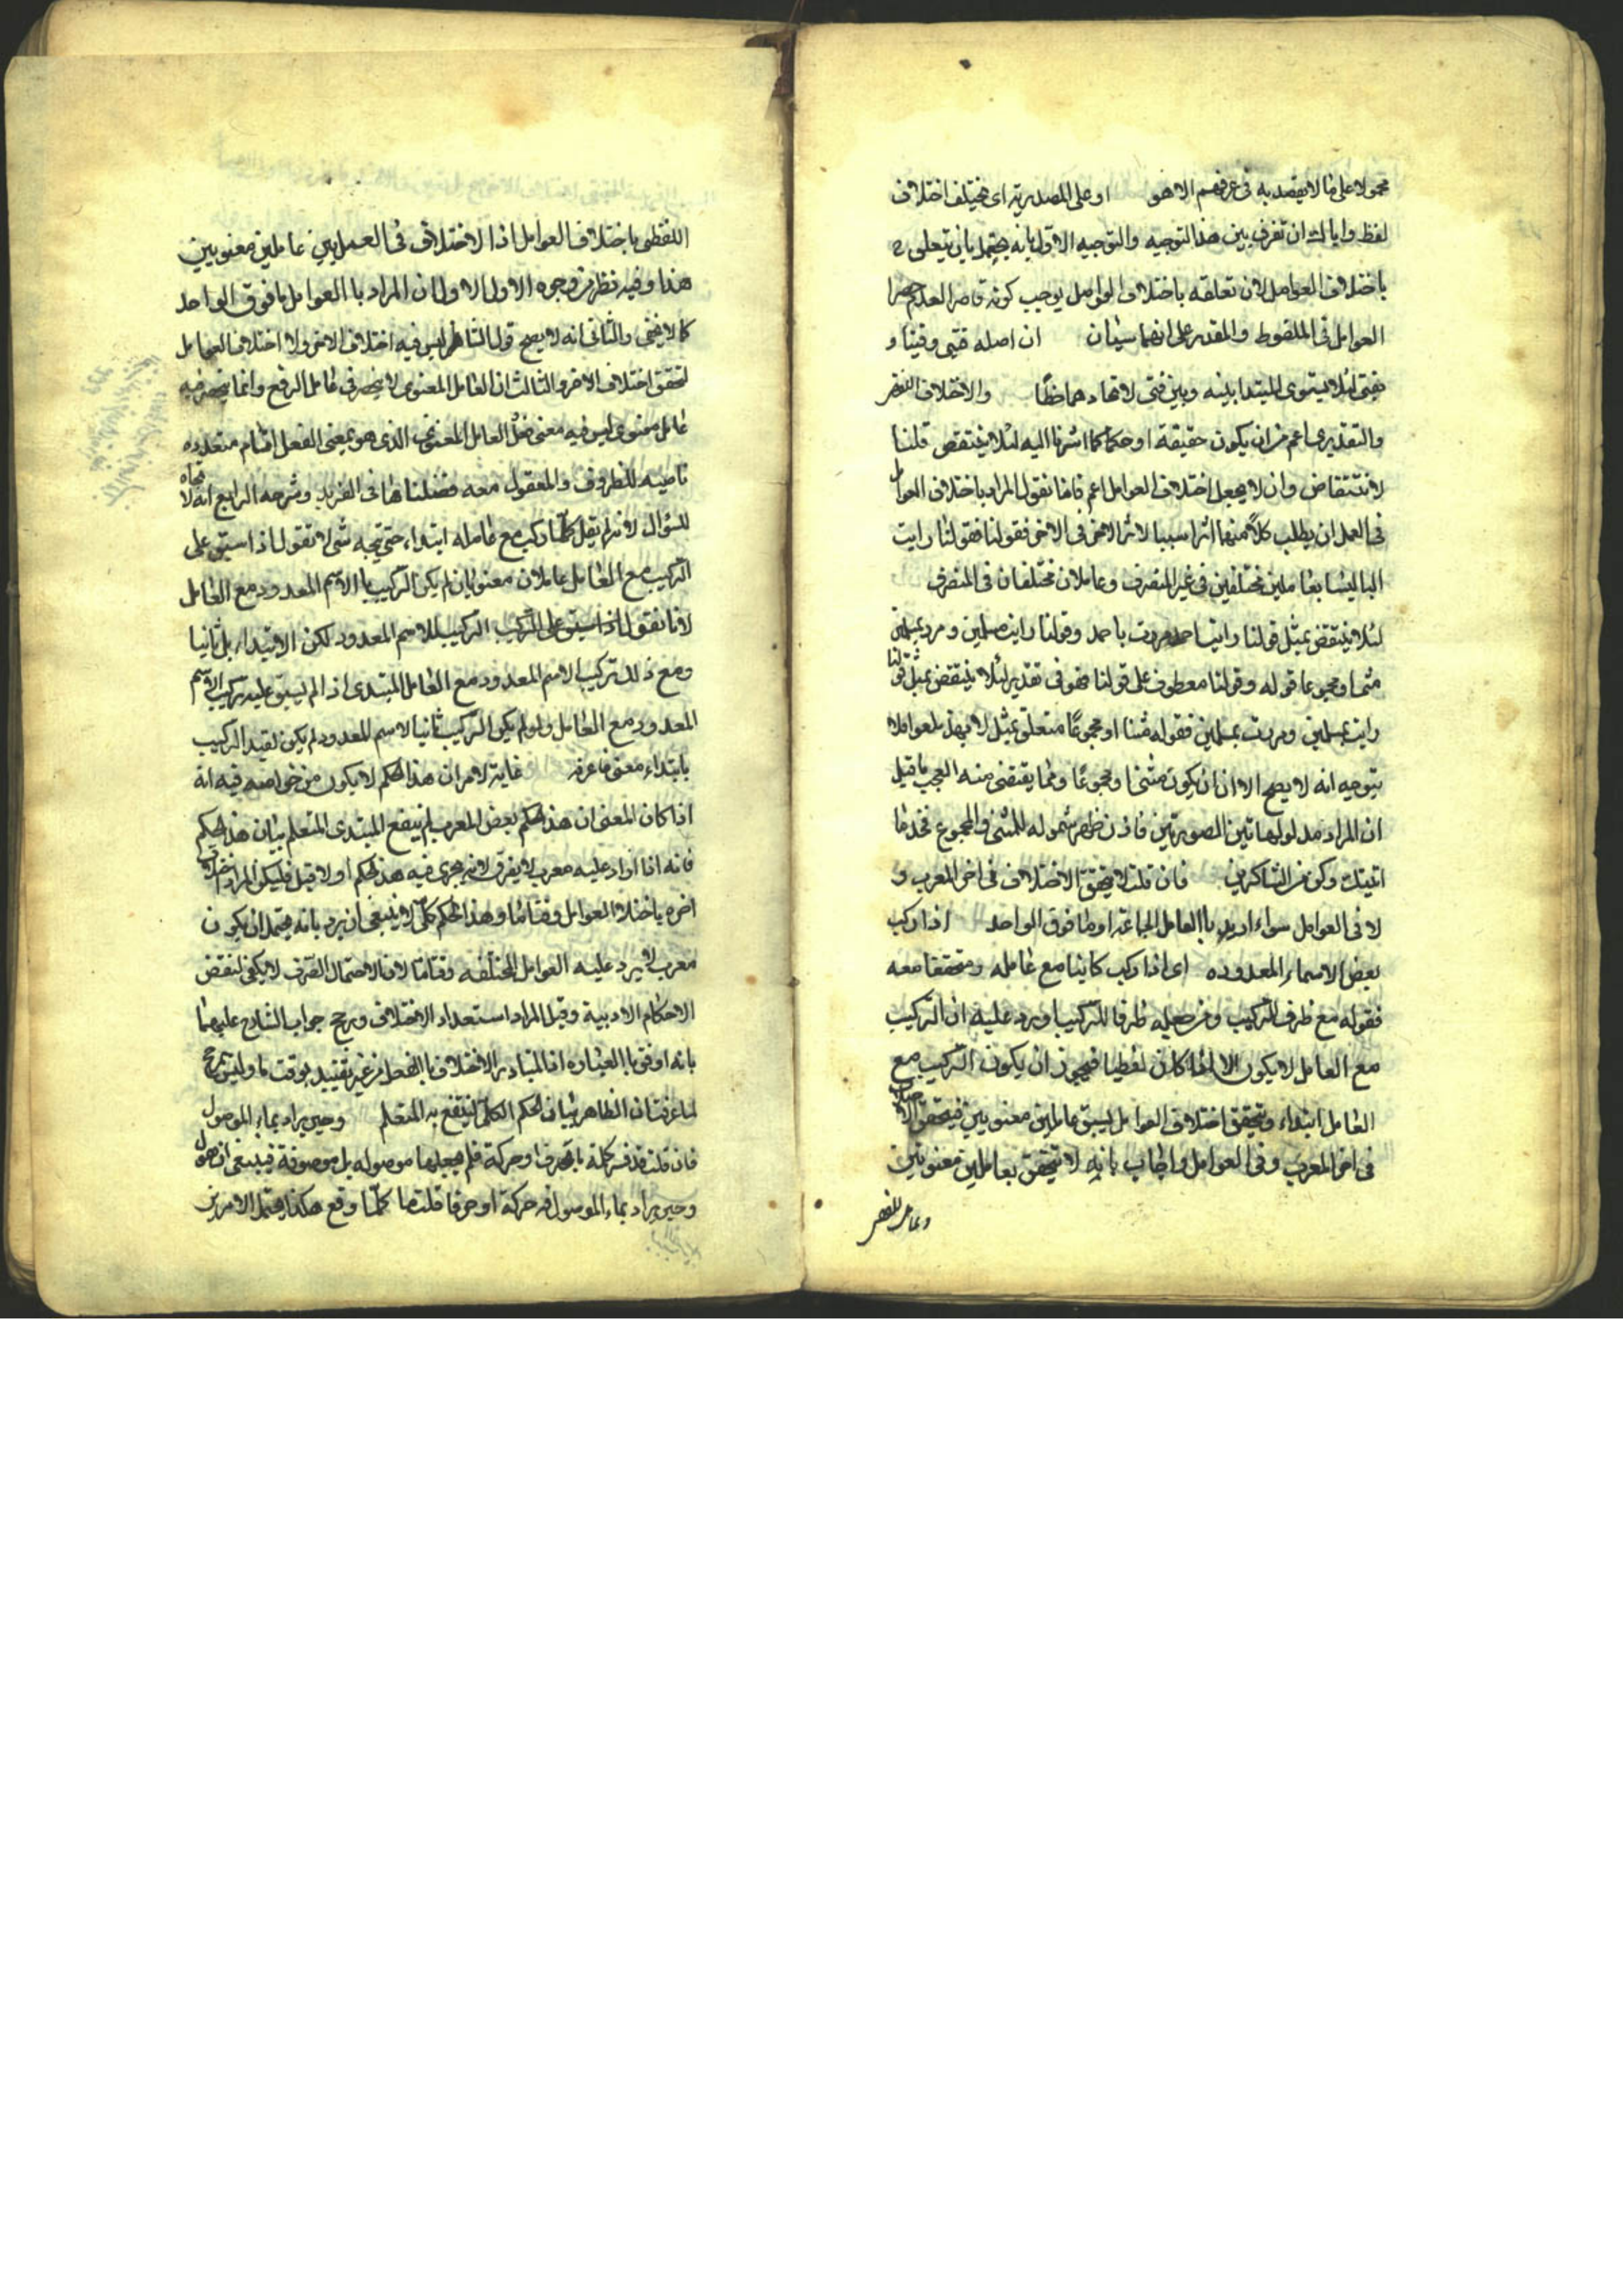 محمولا على ما لا يقصد به فى عرفهم الا هو او على المصدرية اى يختلف اختلاف
لفظ واياك ان تفرق بين هذا التوجيه والتوجيه الاول بانه يحتمل بان يتعلق
باختلاف العوامل لان تعلقه باختلاف العوامل يوجب كونه قاصر
العوامل فى الملفوظ والمقدر على انهما سيان ان اصله فتى وفتيا و
بفتى لئلا يستوى المبتدا بينه وبين فتى لاتحادهما خطًا والاختلاف اللفظى
والتقديرى اعم من ان يكون حقيقة او حكما كما اشرنا اليه لئلا ينتقض قلنا
لانتقاض وان لا يجعل اختلاف العوامل اعم فانا نقول المراد باختلاف العوامل
فى العمل ان يطلب كلا منهما اثرا سببا لاثر الاخر فى الاخر فقولنا فقولنا رايت
الباليسا بعاملين مختلفين فى غير المنصرف وعاملان مختلفان فى المنصرف
لئلا ينتقض بمثل قولنا رايت احمد مررت باحمد وقولنا رايت مسلمين ومررت بمسلمين
مثنى او مجموعا قوله وقولنا معطوف على قولنا فهو فى تقدير لئلا ينتقض بمثل قولنا
رايت مسلمين ومررت بمسلمين فقوله مثنا او مجموعًا متعلق بمثل
يتوجه انه لا يصح الا ان يكون مثنا ومجموعًا ومما يقتضى منه العجب ما قيل
ان المراد مدلولهاتين الصورتين فاذن ظهر شموله للمثنى والمجموع فخذ ما
اتيتك وكن من الشاكرين فان قلت لا يتحقق الاختلاف فى اخر المعرب و
لا فى العوامل سواء اريد باالعامل الجماعة او ما فوق الواحد اذا ركب
بعض الاسماء المعدوده اى اذا ركب كاينا مع عامله ومتحققا معه
فقوله مع ظرف للتركيب ومن جعله ظرفا للتركيب اورد عليه ان التركيب
مع العامل لا يكون الا اذا كان لفظيا فيجوز ان يكون التركيب مع
العامل ابتداء ويتحقق اختلاف العوامل بسبق عاملين معنويين فيتحقق الاختلاف
فى اخر المعرب وفى العوامل واجاب بانه لا يتحقق بعاملين معنويين
اللفظى باختلاف العوامل اذ الاختلاف فى العمل بين عاملين معنويين
هذا وفيه نظر من وجوه الاول الاول ان المراد باالعوامل ما فوق الواحد
كما لا يخفى والثانى انه لا يصح قول الشارح ليس فيه اختلاف الاخر ولا اختلاف العوامل
لتحقق اختلاف الاخر والثالث ان العامل المعنوى لا ينحصر فى عامل الرفع وانما ينحصر فيه
عامل معنوى ليس فيه معنى فعل العامل المعنوى الذى هو بمعنى الفعل اقسام متعدده
ناصبه للظروف والمفعول معه فصلناها فى الفريد وشرحه الرابع انه لا اتجاه
للسؤال لانه لم يقل كلما ركب مع عامله ابتداء حتى يتجه شى لا تقول اذا سبق على
التركيب مع العامل عاملان معنويان لم يكن التركيب باالاسم المعدود مع العامل
لانا نقول اذا سبق على التركيب التركيب للاسم المعدود لكن الابتداء بل ثانيا
ومع ذلك تركيب الاسم المعدود مع العامل المبتدى اذ لم يسبق عليه تركيب الاسم
المعدود مع العامل ولو لم يكن التركيب ثانيا لاسم المعدود لم يكن لقيد التركيب
بابتداء معنى فاعرفه غاية الامر ان هذا الحكم لا يكون من خواصه فيه انه
اذا كان المعنى ان هذا الحكم بعض المعرب لم ينتفع المبتدى المتعلم ببيان هذا الحكم
فانه اذا اراد عليه معرب لا يفرق لانه يجرى فيه هذا الحكم او لا قيل فليكن المراد اختلاف
اخره باختلاف العوامل وقتا ما وهذا الحكم كلى لا ينبغى ان يرد بانه يحتمل ان يكون
معرب لا يرد عليه العوامل المختلفه وقتا ما لان الاحتمال الصرف لا يكفى لنقض
الاحكام الادبية وقيل المراد استعداد الاختلاف ورجح جواب الشارح عليهما
بانه اوفق باالعباره اذ المتبادر الاختلاف باالفعل من غير تقييد بوقت ما وليس بمرجح
لما عرفت ان الظاهر بيان الحكم الكلى لينتفع به المتعلم وحين يراد بماء الموصول
فان قلت قد فسر كلمة ما بحرف او حركة فلم يجعلها موصوله بل موصوفة فينبغى ان يقول
وحين يراد بماء الموصوفه حركة او حرفا قلت ما كلما وقع هكذا يحتمل الامرين